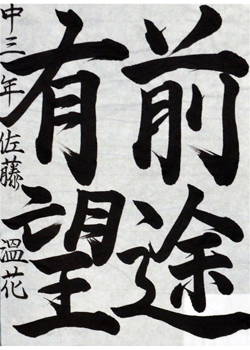 前途
有望
中三年 佐藤 温花